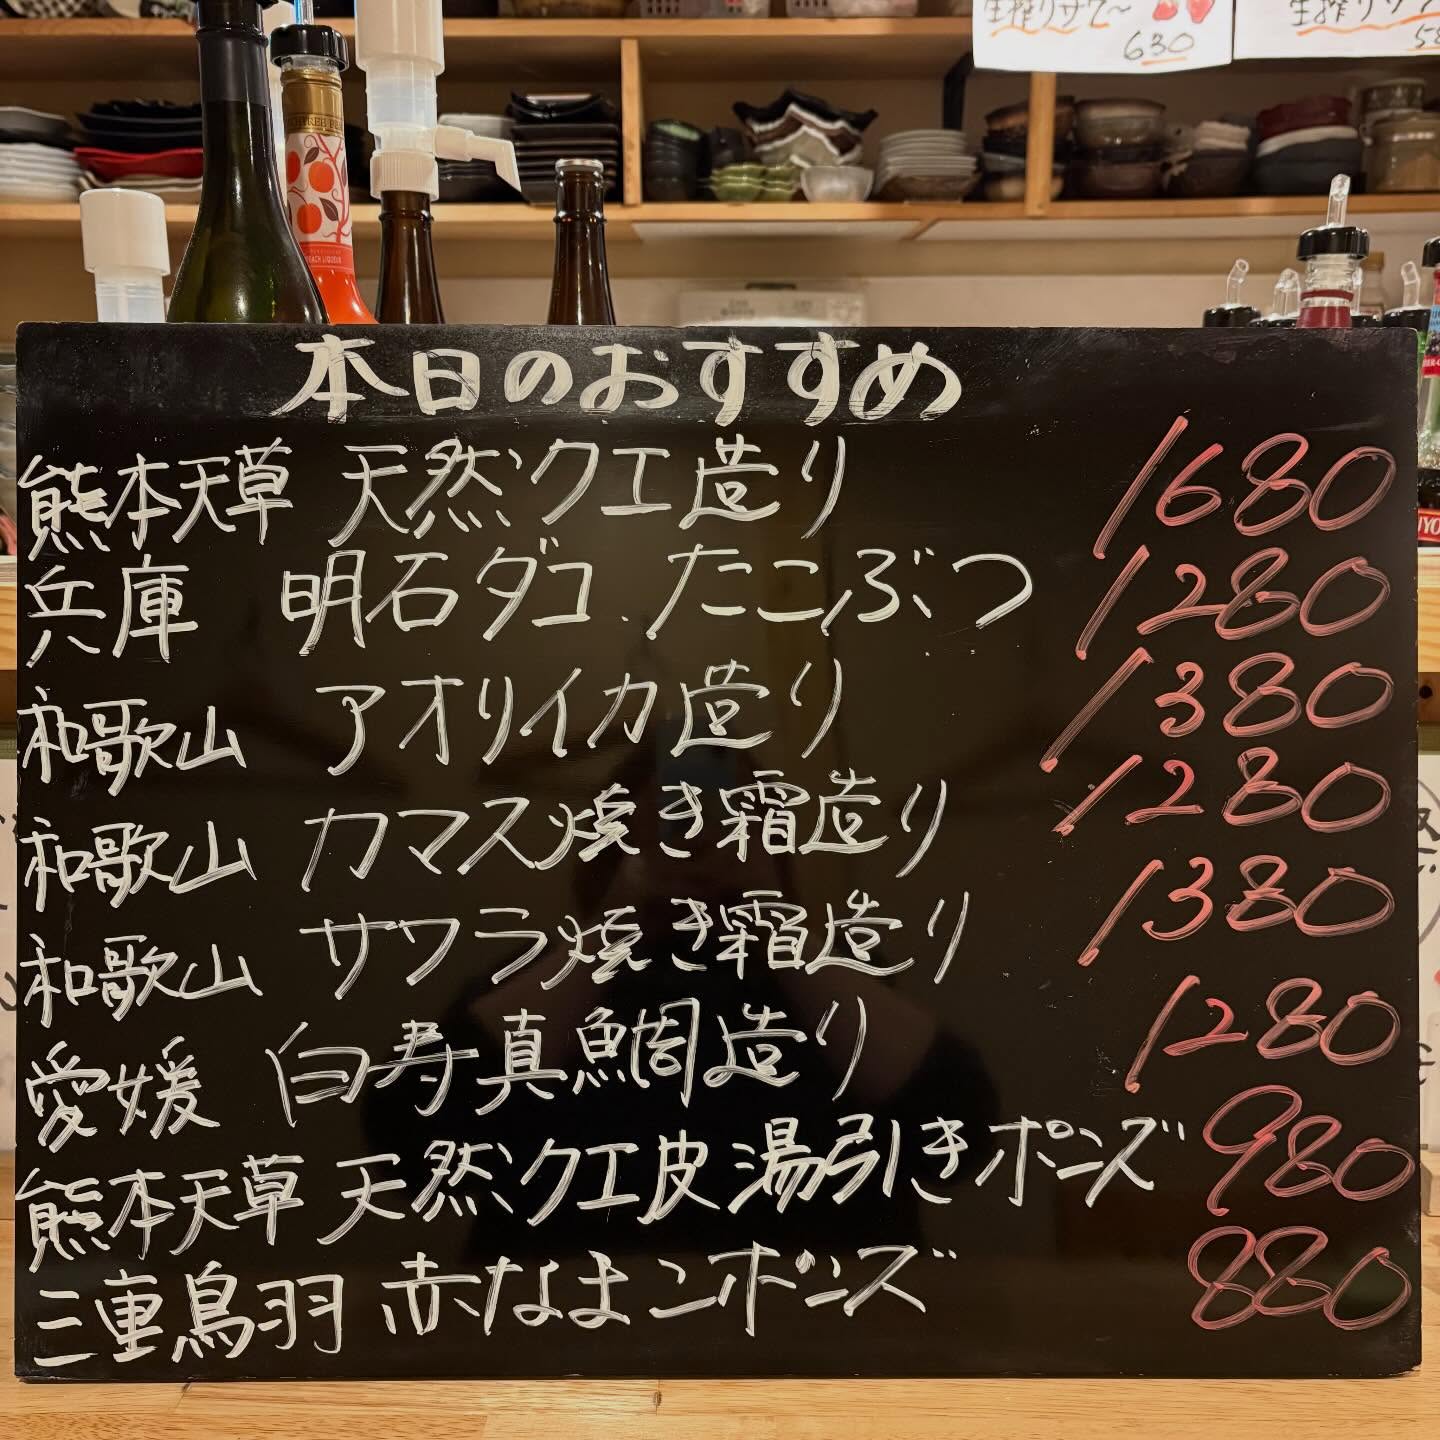 生搾りサワ〜
630
生搾りサワ
58
PEACH LIQUEUR
本日のおすすめ
熊本天草 天然クエ造り 1680
兵庫 明石ダコ たこぶつ 1280
和歌山 アオリイカ造り 1380
和歌山 カマス焼き霜造り 1280
和歌山 サワラ焼き霜造り 1380
愛媛 白寿真鯛造り 1280
熊本天草 天然クエ皮湯引きポンズ 980
三重鳥羽 赤なまこポンズ 880